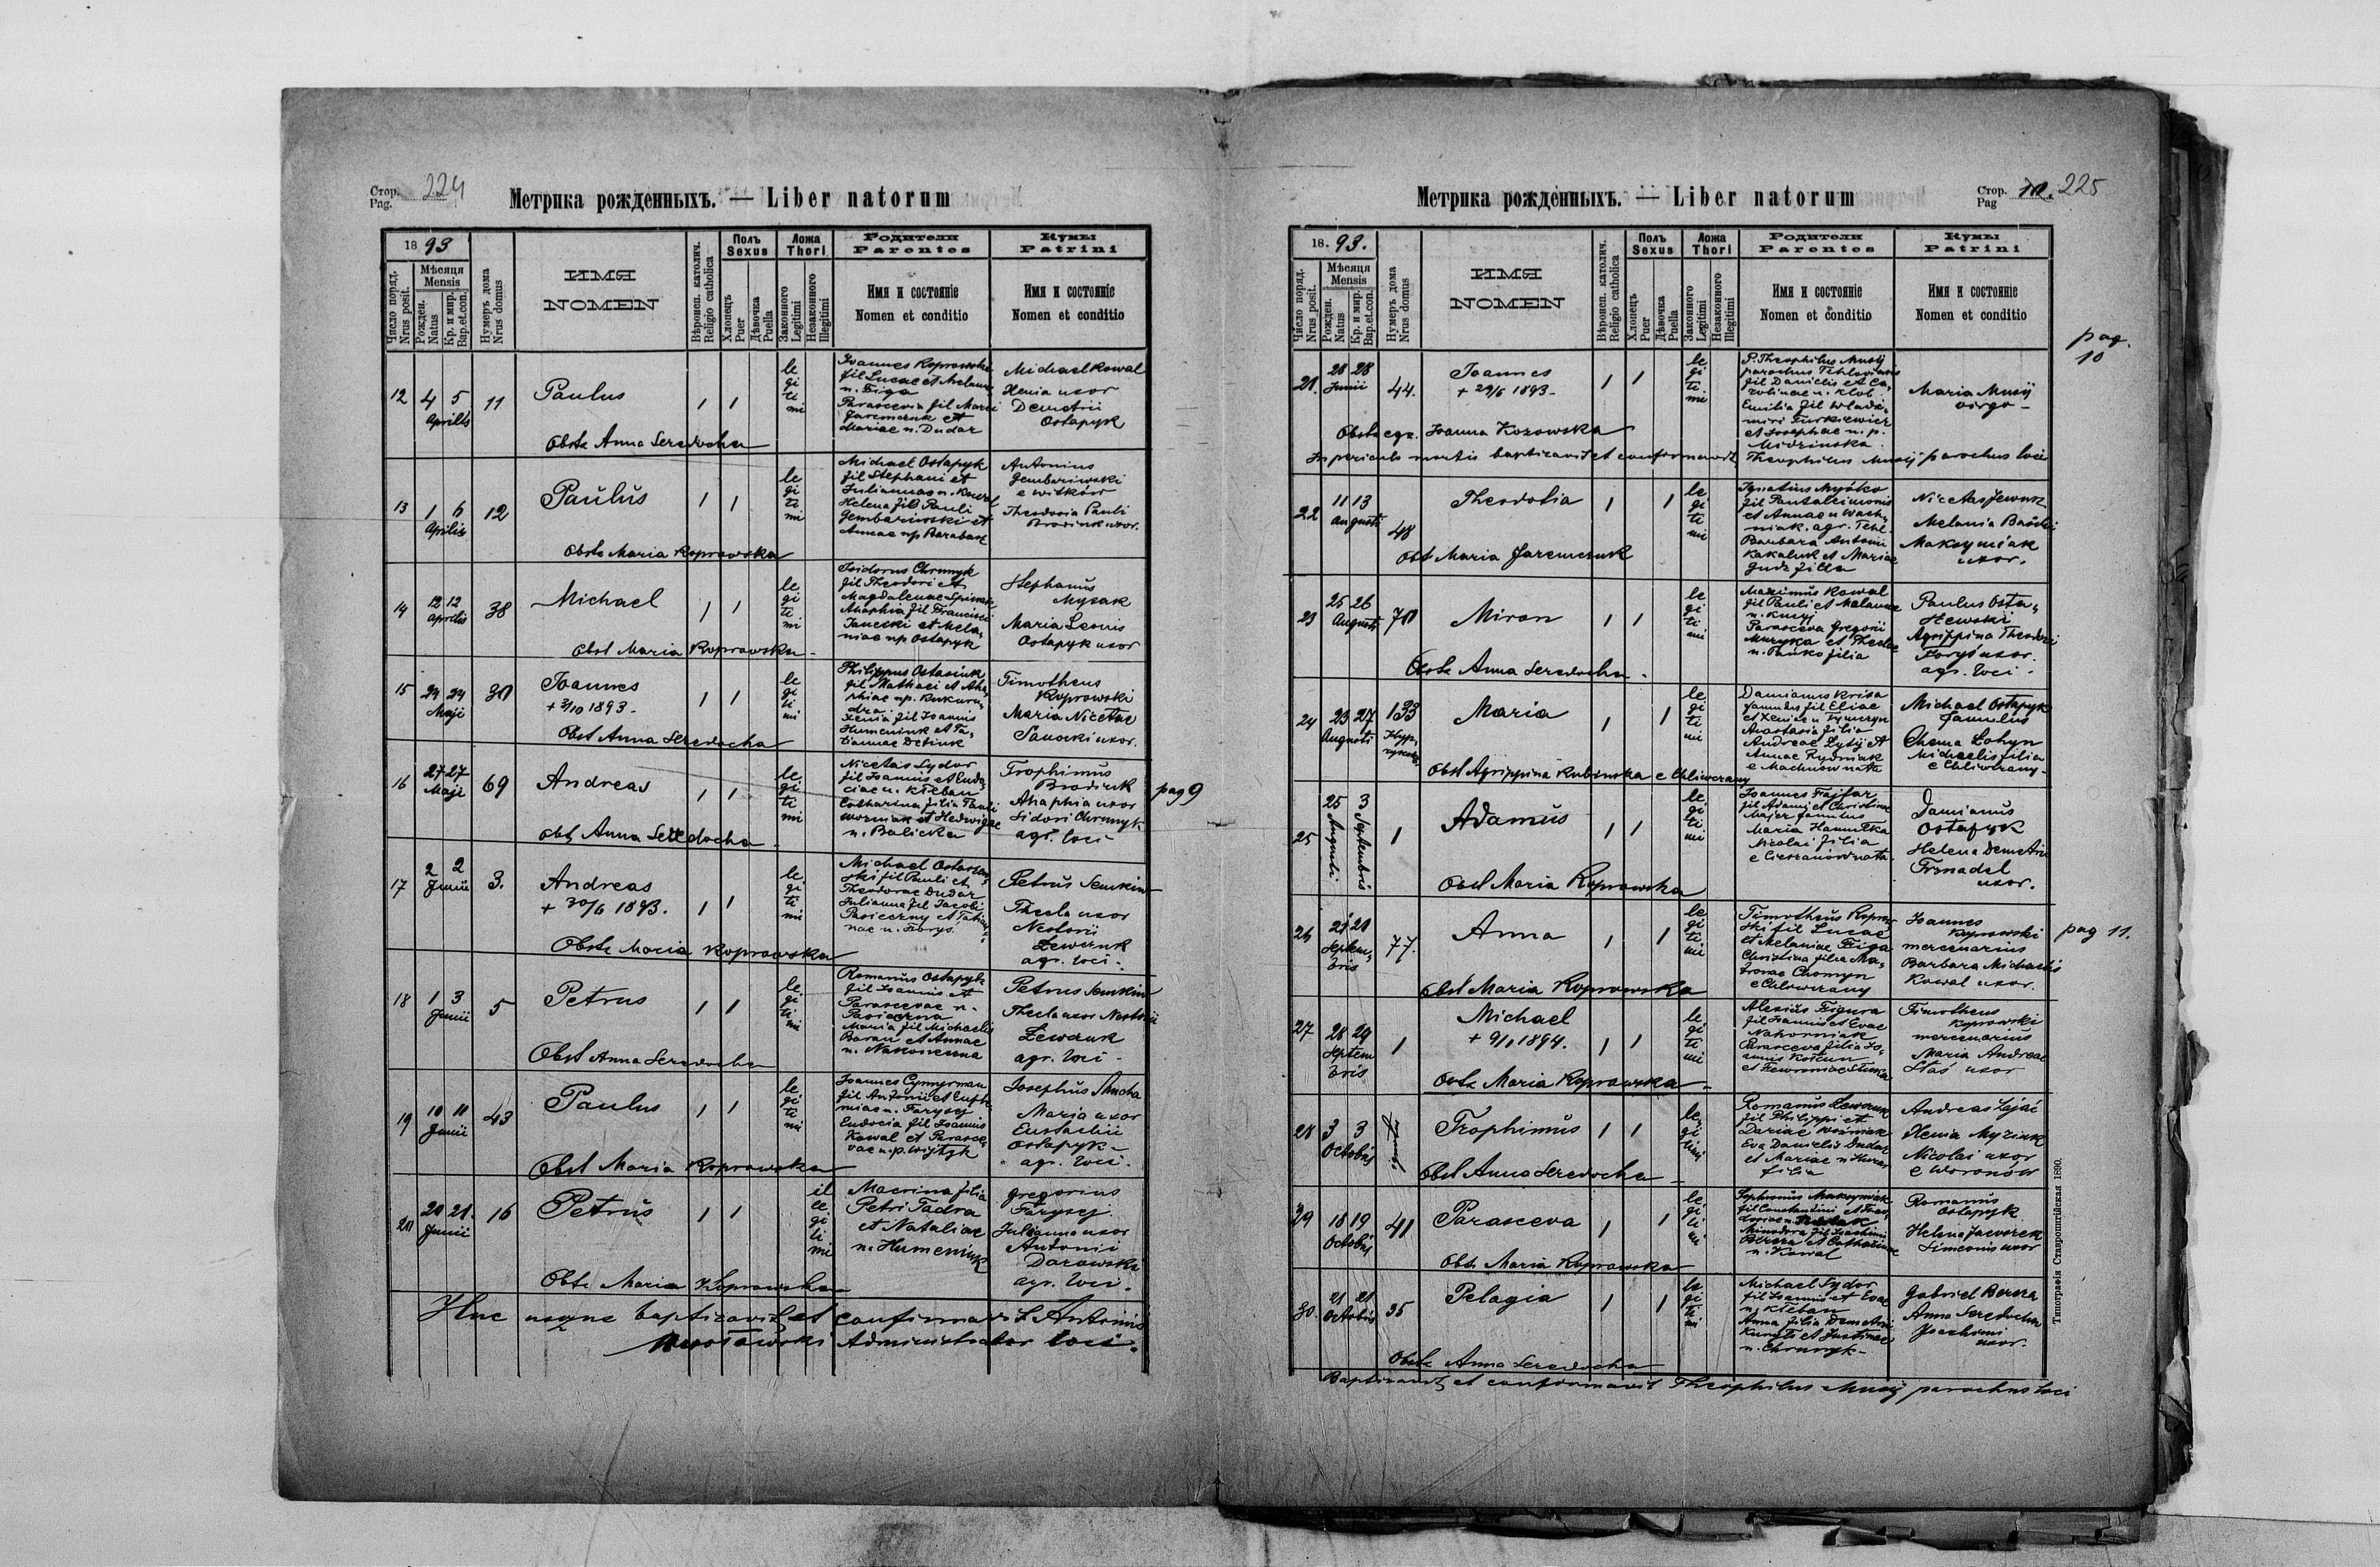 Стор.
Pag. 224
Метрика рожденныхъ. — Liber natorum
18 93
Число поряд.
Nrus posit.
Мѣсяця
Mensis
Рожден.
Natus
Кр. и мир.
Bap.et.con.
Нумеръ дома
Nrus domus
ИМЯ
NOMEN
Вѣроисп. католич.
Religio catholica
Полъ
Sexus
Хлопецъ
Puer
Дѣвочка
Puella
Ложа
Thori
Законного
Legitimi
Незаконного
Illegitimi
Родители
Parentes
Имя и состояніе
Nomen et conditio
Кумы
Patrini
Имя и состояніе
Nomen et conditio
12 4 5 Aprilis 11 Paulus 1 1 legitimi
Joannes Koprowski
fil Lucae et Melaniae
n. Figa
Parascevia fil Marci
Jaremczuk et
Mariae n. Dudar
Michael Kowal
Xenia uxor
Demetrii
Ostapyk
Obste Anna Seredocha
13 1 6 Aprilis 12 Paulus 1 1 legitimi
Michael Ostapyk
fil Stephani et
Juliannae n. Kowal
Helena fil Pauli
Gembariwski et
Annae np Barabasz
Antonius
Gembariwski
e Witków
Theodosia Pauli
uxor.
Obste Maria Koprowska
14 12 12 Aprilis 38 Michael 1 1 legitimi
Isidorus Chrunyk
fil Theodori et
Magdalenae
Ahaphia fil Francisci
Janecki et Mela-
niae np Ostapyk
Stephanus
Myzak
Maria Leonis
Ostapyk uxor
Obst Maria Koprowska
15 24 24 Maji 30 Joannes 1 1 legitimi
+ 3/10 1893.
Philippus Ostasiuk
fil Mathaei et Aha-
phiae np.
Xenia fil Joannis
Humeniuk et Ta-
tiannae Detiuk
Timotheus
Koprowski
Maria Nicetae
Sanocki uxor.
Obst Anna Seredocha
16 27 27 Maji 69 Andreas 1 1 legitimi
Nicetas Sydor
fil Joannis et Eudo-
ciae n. Kleban
Catharina filia Pauli
Wozniak et Hedwigae
n. Balicka
Trophimus
Brodiuk
Ahaphia uxor
Sidori Chrunyk
agr. loci
pag 9
Obst Anna Seredocha
17 2 2 Junii 3. Andreas 1 1 legitimi
+ 30/6 1893.
Michael
fil Pauli et
Theodorae Dudar
Julianna fil Jacobi
Pasieczny et Tatian-
nae n. Forys
Petrus Senkiw
Thecla uxor
Nestorii
Lewczuk
agr. loci.
Obste Maria Koprowska
18 1 3 Junii 5 Petrus 1 1 legitimi
Romanus Ostapyk
fil Joannis et
Parascevae n.
Pasieczna
Maria fil Michaelis
Baran et Annae
n. Nakonieczna
Petrus Senkiw
Thecla uxor Nestorii
Lewczuk
agr. loci
Obst Anna Seredocha
19 10 11 Junii 43 Paulus 1 1 legitimi
Joannes Cymyrman
fil Antonii et Euphe-
miae n. Farysej
Eudocia fil Joannis
Kowal et Parasce-
vae n.p. Wijtyk
Josephus Mucha
Maria uxor
Eustachii
Ostapyk
agr. loci.
Obst Maria Koprowska
20 20 21. Junii 16 Petrus 1 1 illegitimi
Macrina filia
Petri Fadra
et Nataliae
n. Humeniuk
Gregorius
Farysej.
Julianna uxor
Antonii
Darowski
agr. loci.
Obste Maria Koprowska
Huc usque baptizavit et confirmavit Antonius
Administrator loci.
Метрика рожденныхъ. — Liber natorum
Стор.
Pag 225
18. 93.
Число поряд.
Nrus posit.
Мѣсяця
Mensis
Рожден.
Natus
Кр. и мир.
Bap.et.con.
Нумеръ дома
Nrus domus
ИМЯ
NOMEN
Вѣроисп. католич.
Religio catholica
Полъ
Sexus
Хлопецъ
Puer
Дѣвочка
Puella
Ложа
Thori
Законного
Legitimi
Незаконного
Illegitimi
Родители
Parentes
Имя и состояніе
Nomen et conditio
Кумы
Patrini
Имя и состояніе
Nomen et conditio
pag.
10
21. 28 28 Junii 44. Joannes 1 1 legitimi
+ 29/6 1893.
P. Theophilus Musij
parochus Tehloviensis
fil Danielis et Ca-
rolinae n. Klob
Emilia fil Wladi-
miri Turkiewicz
et Josephae n. p.
Midzinska
Maria Musij
virgo
Obste egz. Joanna Kozowska
In periculo mortis baptizavit et confirmavit Theophilus Musij parochus loci
22 11 13 Augusti 48 Theodosia 1 1 legitimi
Ignatius Myśko
fil Pantaleimonis
et Annae n Wach-
niak. agr. Tehl.
Barbara Antonii
Kakaluk et Mariae
Gudz filia
Nicetas Jewuk
Melania Basilii
Maksymiak
uxor.
Obst Maria Jaremczuk
23 25 26 Augusti 70 Miron 1 1 legitimi
Maximus Kowal
fil Pauli et Melaniae
n. Knysz
Parasceva Gregorii
Muzyka et Theclae
n. Pańko filia
Paulus Osta-
szewski
Agrippina Theodori
Foryś uxor.
agr. loci.
Obste Anna Seredocha.
24 23 27 Augusti 133 Maria 1 1 legitimi
Damianus Krisa
famulus fil Eliae
et Xeniae n Tymczyn
Anastasia filia
Andreae Lytij et
Annae Rydniak
e Machnow nata
Michael Ostapyk
famulus
Chema Lohyn
Michaelis filia
e Chliwczany
Obst Agrippina Rubinska e Chliwczany
25 25 Augusti 3 Septembris 1 Adamus 1 1 legitimi
Joannes Fajfar
fil Adami et Christinae
Majer famulus
Maria Hamulka
Nicolai filia
e Cieszanów nata
Damianus
Ostapyk
Helena Demetrii
uxor.
Obst Maria Koprowska
26 21 21 Septembris 77. Anna 1 1 legitimi
Timotheus Koprow-
ski fil Lucae
et Melaniae Figa
Christina filia Ma-
tronae Chomyn
e Chliwczany
Joannes
Koprowski
mercenarius
Barbara Michaelis
Kowal uxor.
pag 11.
Obst Maria Koprowska
27 28 29 Septembris 1 Michael 1 1 legitimi
+ 9/1 1894.
Alexius Figura
fil Joannis et Evae
Nahorniak
Parasceva filia Jo-
annis Kokun
Timotheus
Koprowski
mercenarius
Maria Andreae
Staś uxor
Obste Maria Koprowska
28 3 3 Octobris Trophimus 1 1 legitimi
Romanus Lewczuk
fil Philippi et
Dariae Wozniak
Eva Danielis Dudar
et Mariae n Huras
filia
Andreas Zając
Xenia Myziuk
Nicolai uxor
e Woronów
Obst Anna Seredocha
29 18 19 Octobris 41 Parasceva 1 1 legitimi
Sophronius Maksymiak
fil Constantini et Theo-
dosiae n
Minodora fil Joachimi
Bereza et Catharinae
n. Kowal
Romanus
Ostapyk
Helena Jaworek
Simeonis uxor
Obst Maria Koprowska
30. 21 21 Octobris 35 Pelagia 1 1 legitimi
Michael Sydor
fil Joannis et Evae
n. Kleban
Anna filia Demetrii
et Justinae
n. Chrunyk
Gabriel Bereza
Anna Seredocha
Joachimi
uxor.
Obste Anna Seredocha
Baptizavit et confirmavit Theophilus Musij parochus loci
Типографія Ставропигійская 1890.